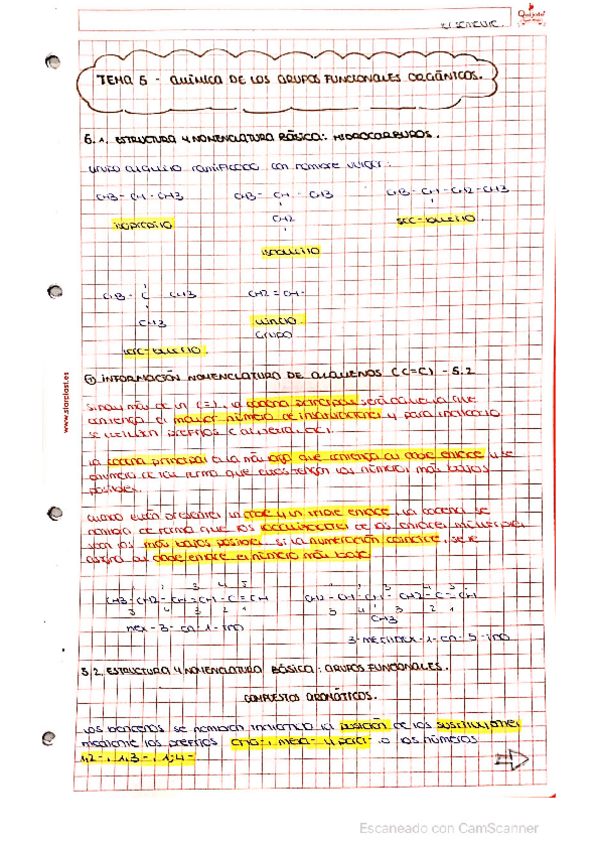 TEMA 5 - QUÍMICA DE LOS GRUPOS FUNCIONALES ORGÁNICOS.
5.1. ESTRUCTURA Y NOMENCLATURA BÁSICA: HIDROCARBUROS.
ramificado con nombre vulgar:
CH3 - CH - CH3
CH3 - CH - CH3
CH3 - CH - CH2 - CH3
CH2
isopropilo
sec-butilo
isobutilo
CH3 - C - CH3
CH2 = CH -
CH3
vinilo.
GRUPO
terc-butilo.
INFORMACIÓN NOMENCLATURA DE ALQUENOS (C=C) - 5.2
Si hay más de un C=C, la cadena principal será aquella que
contenga el mayor número de insaturaciones y para indicarlo
se utilizan prefijos
La cadena principal es la más larga que contenga al doble enlace y se
numera de tal forma que estos tengan los números más bajos
posibles.
Cuando están presentes un doble y un triple enlace, la cadena se
nombra de forma que los localizadores de los enlaces múltiples
sean los más bajos posibles, si la numeración coincide, se le
asigna al doble enlace el número más bajo
CH3 - CH2 - CH = CH - C ≡ CH
hex-3-en-1-ino
CH3
3-metilhex-1-en-5-ino
5.2. ESTRUCTURA Y NOMENCLATURA BÁSICA: GRUPOS FUNCIONALES.
COMPUESTOS AROMÁTICOS.
Los bencenos se nombran indicando la posición de los sustituyentes
mediante los prefijos orto-, meta- y para-, o los números
1,2-, 1,3-, 1,4-
www.starclast.es
Escaneado con CamScanner